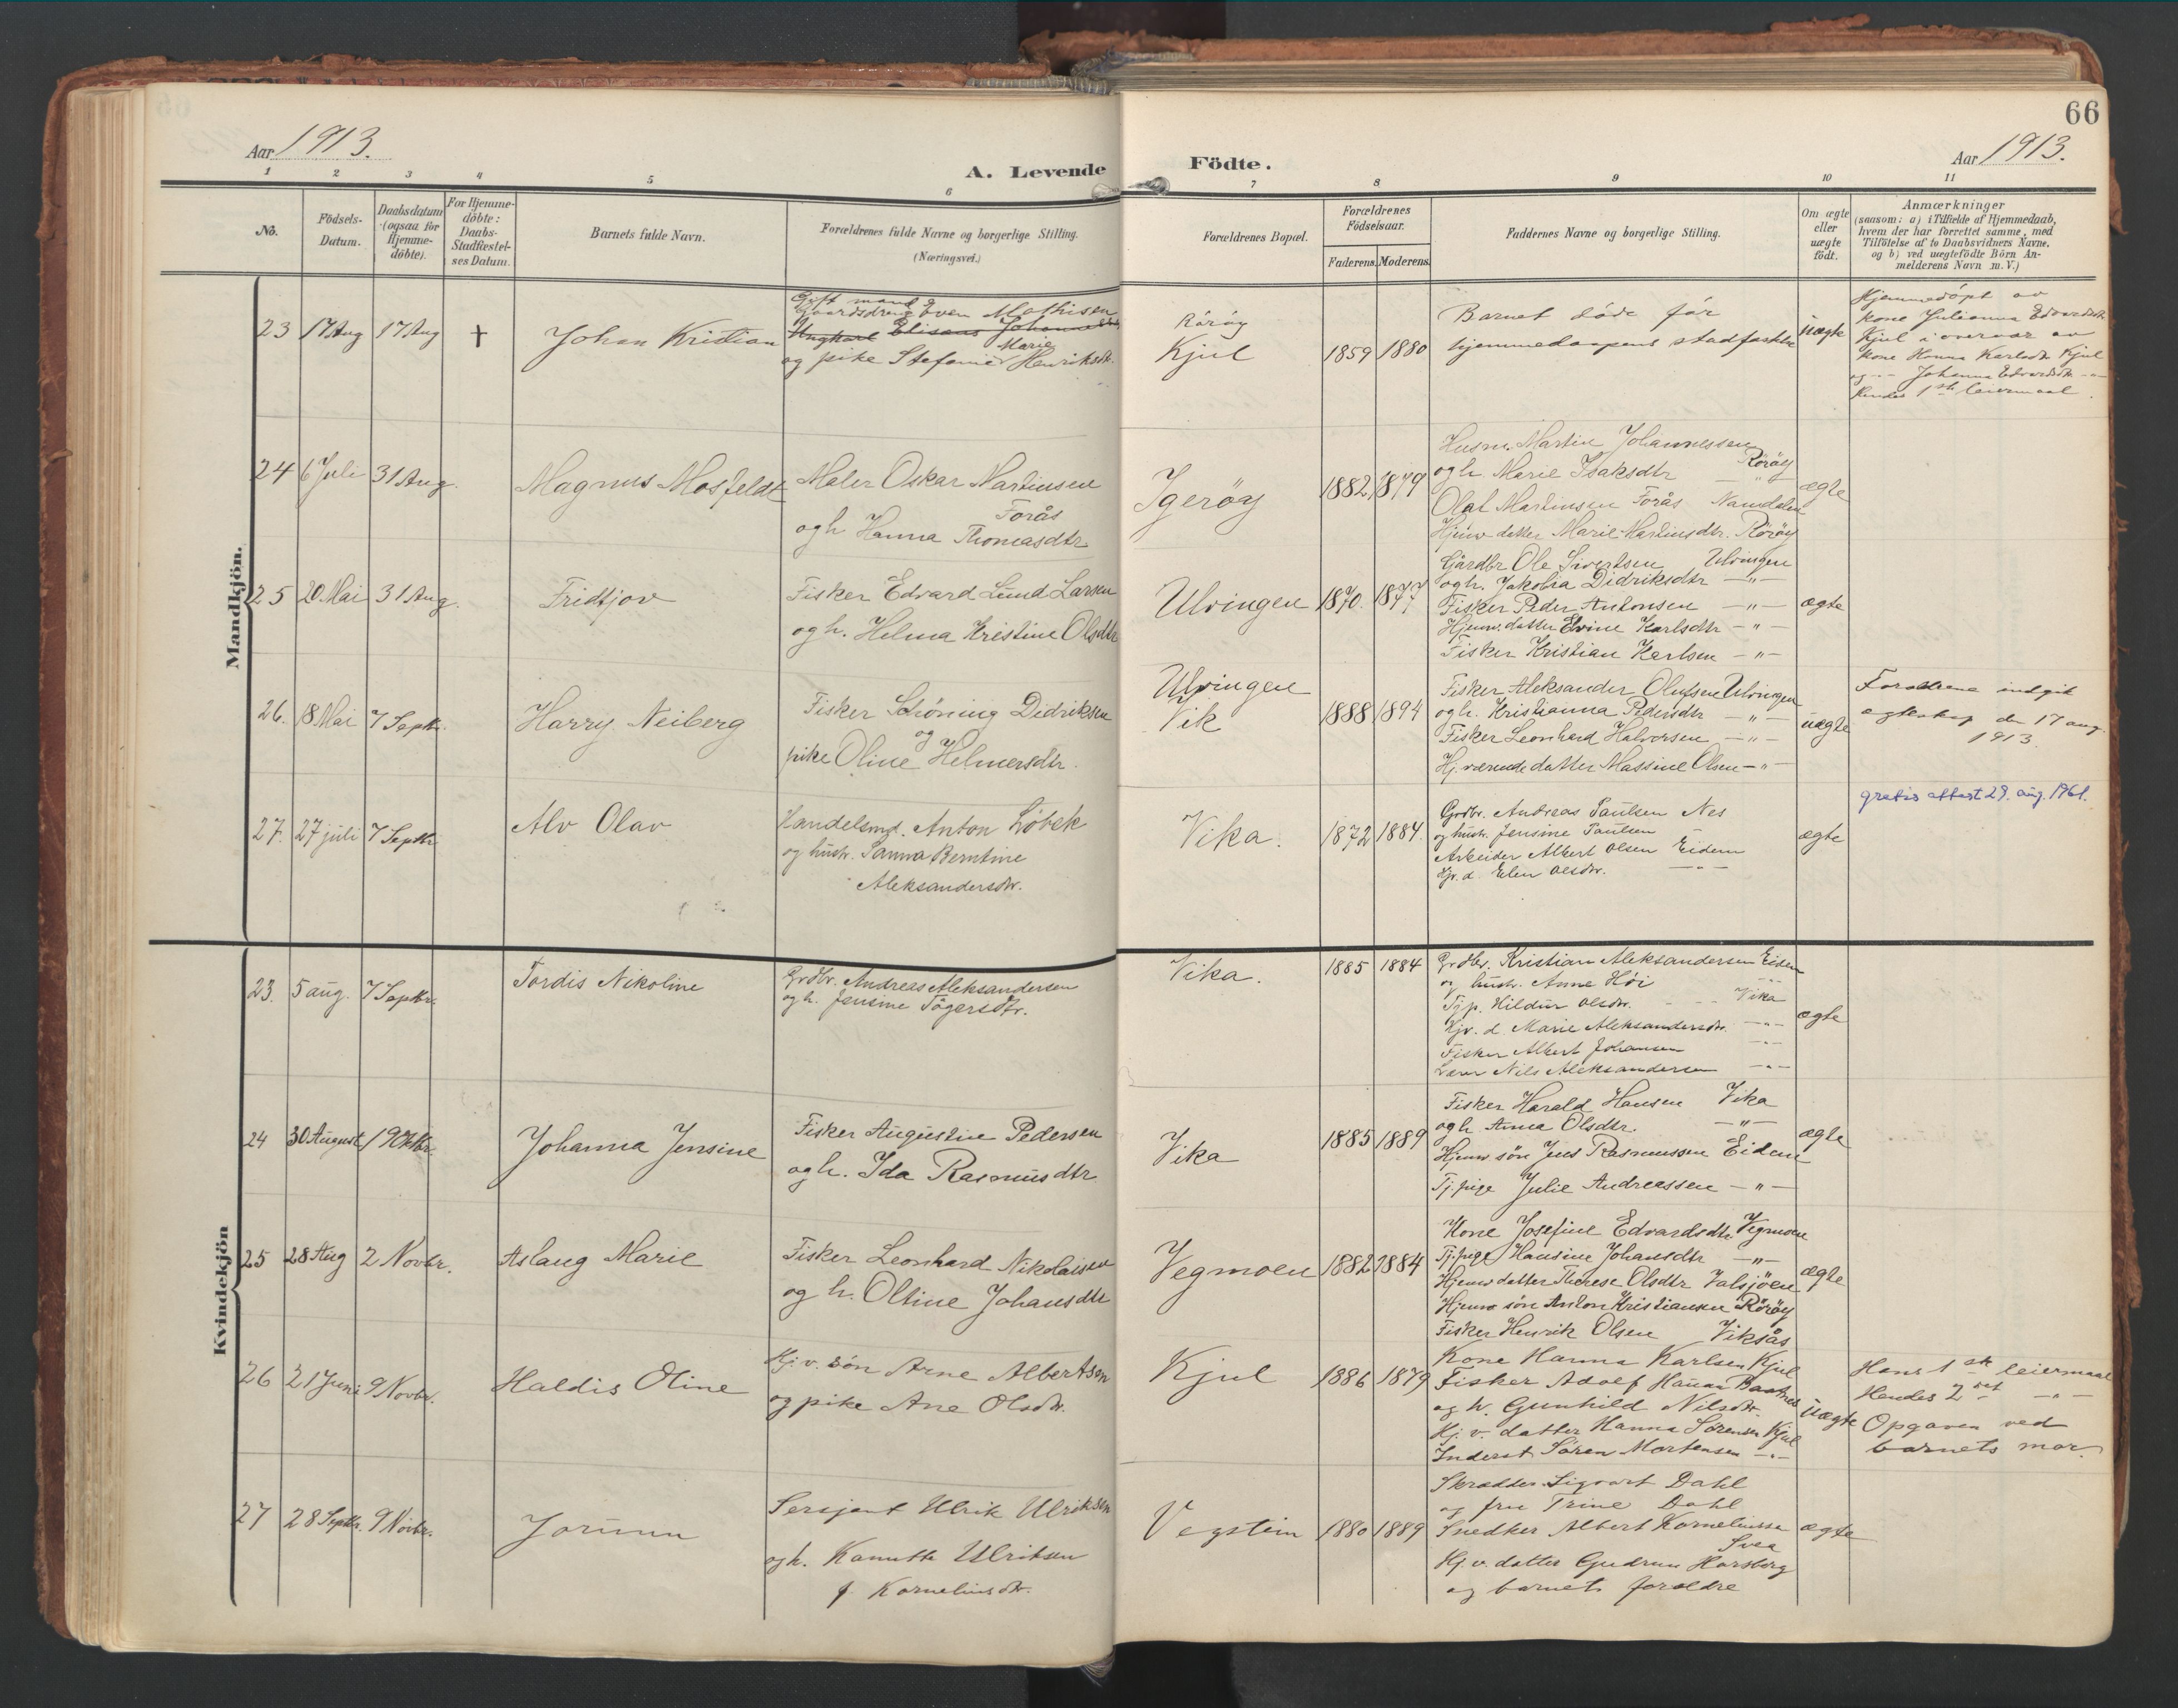 66
Aar 1913.
A. Levende Födte.
Aar 1913.
1 2 3 4 5 6 7 8 9 10 11
No.
Födsels-
Datum.
Daabsdatum
(ogsaa for
Hjemme-
döbte).
For Hjemme-
döbte:
Daabs-
Stadfæstel-
ses Datum.
Barnets fulde Navn.
Forældrenes fulde Navne og borgerlige Stilling.
(Næringsvei.)
Forældrenes Bopæl.
Forældrenes
Födselsaar.
Faderens.
Moderens.
Faddernes Navne og borgerlige Stilling.
Om ægte
eller
uægte
födt.
Anmærkninger
(saasom: a) i Tilfælde af Hjemmedaab,
hvem der har forrettet samme, med
Tilföielse af to Daabsvidners Navne,
og b) ved uægtefödte Börn An-
melderens Navn m. V.)
Mandkjön.
23 17 Aug 17 Aug † Johan Kristian
Gift mand
Gaardsdreng Even Mathisen
Ungkarl Elisæus Johannes
Marie
og pike Stefanie Henriksdtr.
Rörøy
Kjul
1859 1880
Barnet døde før
hjemmedaapens stadfæstelse
uægte
Hjemmedøpt av
kone Julianna Edvardsdtr
Kjul i overvær av
kone Hanna Karlsdtr Kjul
og -"- Johanna Edvardsdtr -"-
Hendes 1ste leiermaal.
24 6 Juli 31 Aug. Magnus Mosfeldt
Maler Oskar Martinsen
Forås
og h Hanna Thomasdtr
Igerøy
1882 1879
Husm. Martin Johannessen
Rörøy
og h. Marie Isaksdtr -"-
Olat Martinsen Forås Namdalen
Hjemv datter Marie Martinsdtr. Rörøy
ægte
25 20 Mai 31 Aug. Fridtjov
Fisker Edvard Lund Larsen
og h. Helma Kristine Olsdtr
Ulvingen
1870. 1877
Gårdbr Ole Sivertsen Ulvingen
og h. Jakobia Didriksdtr -"-
Fisker Peder Antonsen -"-
Hjemv. datter Elvine Karlsdtr -"-
Fisker Kristian Karlsen -"-
ægte
26. 18 Mai 7 Septbr. Harry Neiberg
Fisker Schøning Didriksen
og
pike Oline Helmersdtr.
Ulvingen
Vik
1888 1894
Fisker Aleksander Olufsen Ulvingen
og h. Kristianna Pedersdtr -"-
Fisker Leonhard Halvorsen -"-
Hj. værende datter Massine Olsen -"-
uægte
Forældrene indgik
egteskap den 17 aug.
1913.
27. 27 juli 7 Septbr. Alv Olav
Handelsmd. Anton Løbek
og hustr. Sanna Berntine
Aleksandersdtr.
Vika.
1872 1884.
Grdbr. Andreas Paulsen Nes
og hustr. Jensine Paulsen -"-
Arbeider Albert Olsen Eidem
Hjv. d. Elen Olsdtr. -"-
ægte
gratis attest 29. aug. 1961.
Kvindekjön
23. 5 aug. 7 Septbr. Tordis Nikoline
Grdbr. Andreas Aleksandersen
og h. Jensine Tøgersdtr.
Vika.
1885 1884
Grdbr. Kristian Aleksandersen Eidem
og hustr. Anne Höi -"-
Tj.p. Hildur Olsdtr. Vika
Hjv. d. Marie Aleksandersdtr. -"-
Fisker Albert Johansen -"-
Lærer Nils Aleksandersen -"-
ægte
24 30 August 19 Oktbr. Johanna Jensine
Fisker Augustin Pedersen
og h. Ida Rasmusdtr
Vika
1885 1889
Fisker Harald Hansen Vika
og h Anna Olsdtr. -"-
Hjemv søn Jens Rasmussen Eidem
Tj. pige Julie Andreassen -"-
ægte
25 28 Aug 2 Novbr. Aslaug Marie
Fisker Leonhard Nikolaisen
og h. Oltine Johansdtr
Vegmoen
1882 1884
Kone Josefine Edvardsdtr Vegmoen
Tj. pige Hansine Johansdtr -"-
Hjemv datter Therese Olsdtr Valsjøen
Hjemv søn Anton Kristiansen Rörøy
Fisker Henrik Olsen Viksås
ægte
26 21 Juni 9 Novbr. Haldis Oline
Hj. v. søn Arne Albertsen
og pike Ane Olsdtr.
Kjul
1886 1879
Kone Hanna Karlsen Kjul
Fisker Adolf Hansen
og h. Gunhild Nilsdtr
Hj. v. datter Hanna Sørensen Kjul
Inderst Søren Mortensen -"-
uægte
Hans 1ste leiermaal
Hendes 2det -"-
Opgaven ved
barnets mor.
27 28 Septbr. 9 Novbr. Jorunn
Sersjant Ulrik Ulriksen
og h. Kanutte Ulriksen
f. Korneliusdtr.
Vegstein
1880 1889
Skrædder Sigvart Dahl
og fru Trine Dahl
Snedker Albert Korneliussen
Svea
Hj. v. datter Gudrun Horsberg
og barnets forældre
ægte